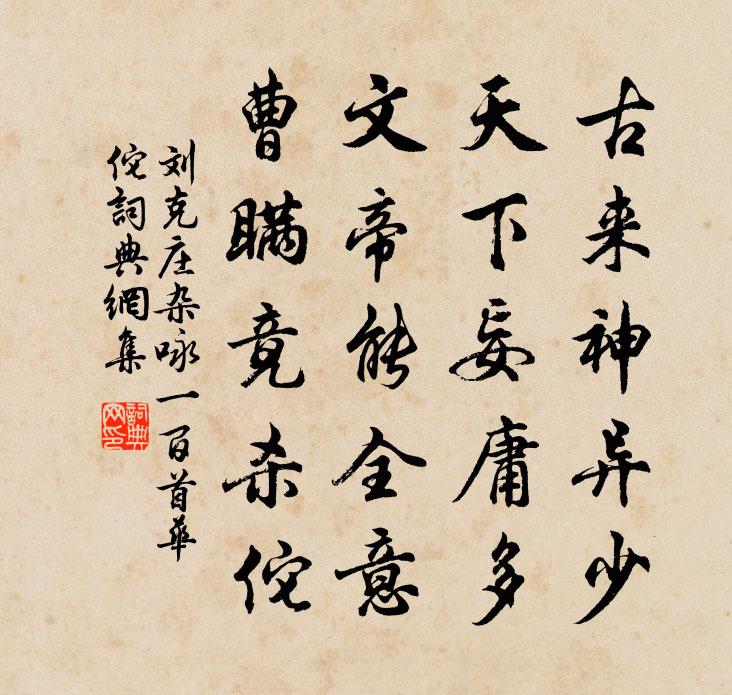 古来神异少
天下妄庸多
文帝能全意
曹瞒竟杀佗
刘克庄杂咏一百首华
佗詞典網集
詞典
网印